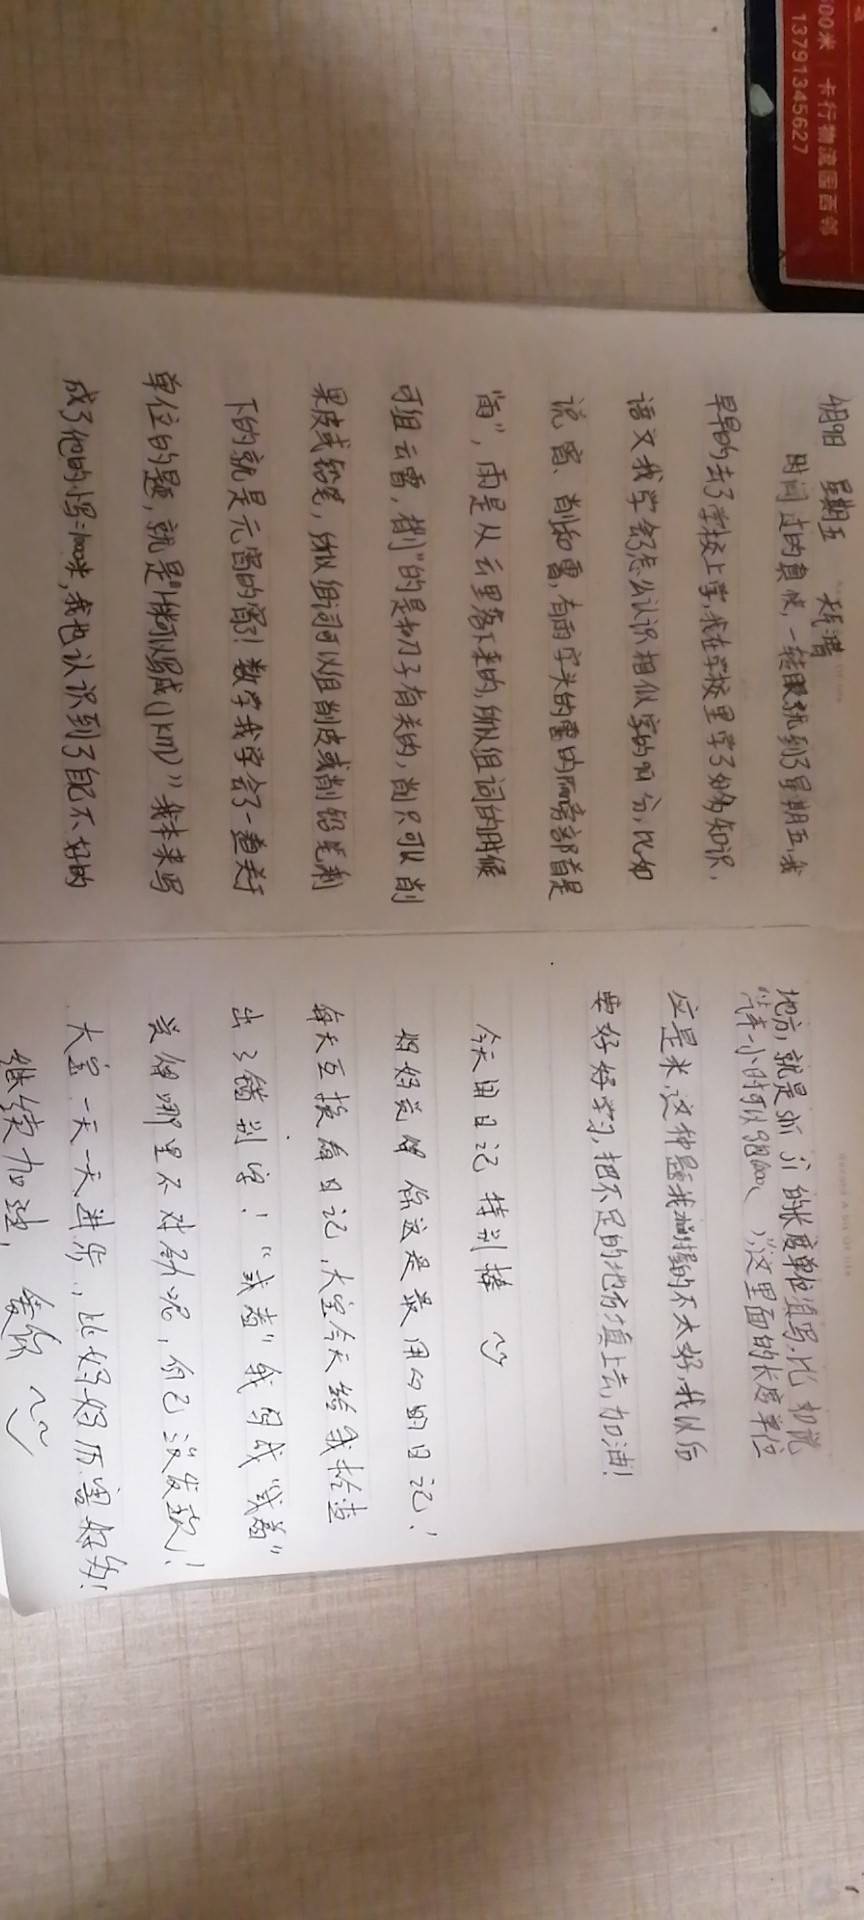 00米 卡行物流园西邻
13791345627
星期五
时间过的真快,一转眼就到了星期五,我
早早的去了学校上学,我在学校里学了好多知识,
语文我学会了怎么认识相似字的区分,比如
说 宵、削和霄,有雨字头的霄的偏旁部首是
“雨”,雨是从云里落下来的,所以组词的时候
可组云霄,“削”的是和刀子有关的,削只可以削
果皮或铅笔,所以组词可以组削皮或削铅笔,剩
下的就是元宵的宵了!数学我学会了一道关于
单位的题,就是
我本来写
成了
米,我也认识到了自己不好的
地方,就是
的长度单位填写,比如说
汽车一小时可以
这里面的长度单位
应是米,这种题我掌握的不太好,我以后
要好好学习,把不足的地方填上去,加油!
今天的日记 特别棒
妈妈觉得你这是最用心的日记!
每天互换看日记,大宝今天给我检查
出了错别字!“或着”我写成“或着”
觉得哪里不对劲呢,自己没发现!
大宝一天一天进步,比妈妈厉害好多!
继续加油, 爱你